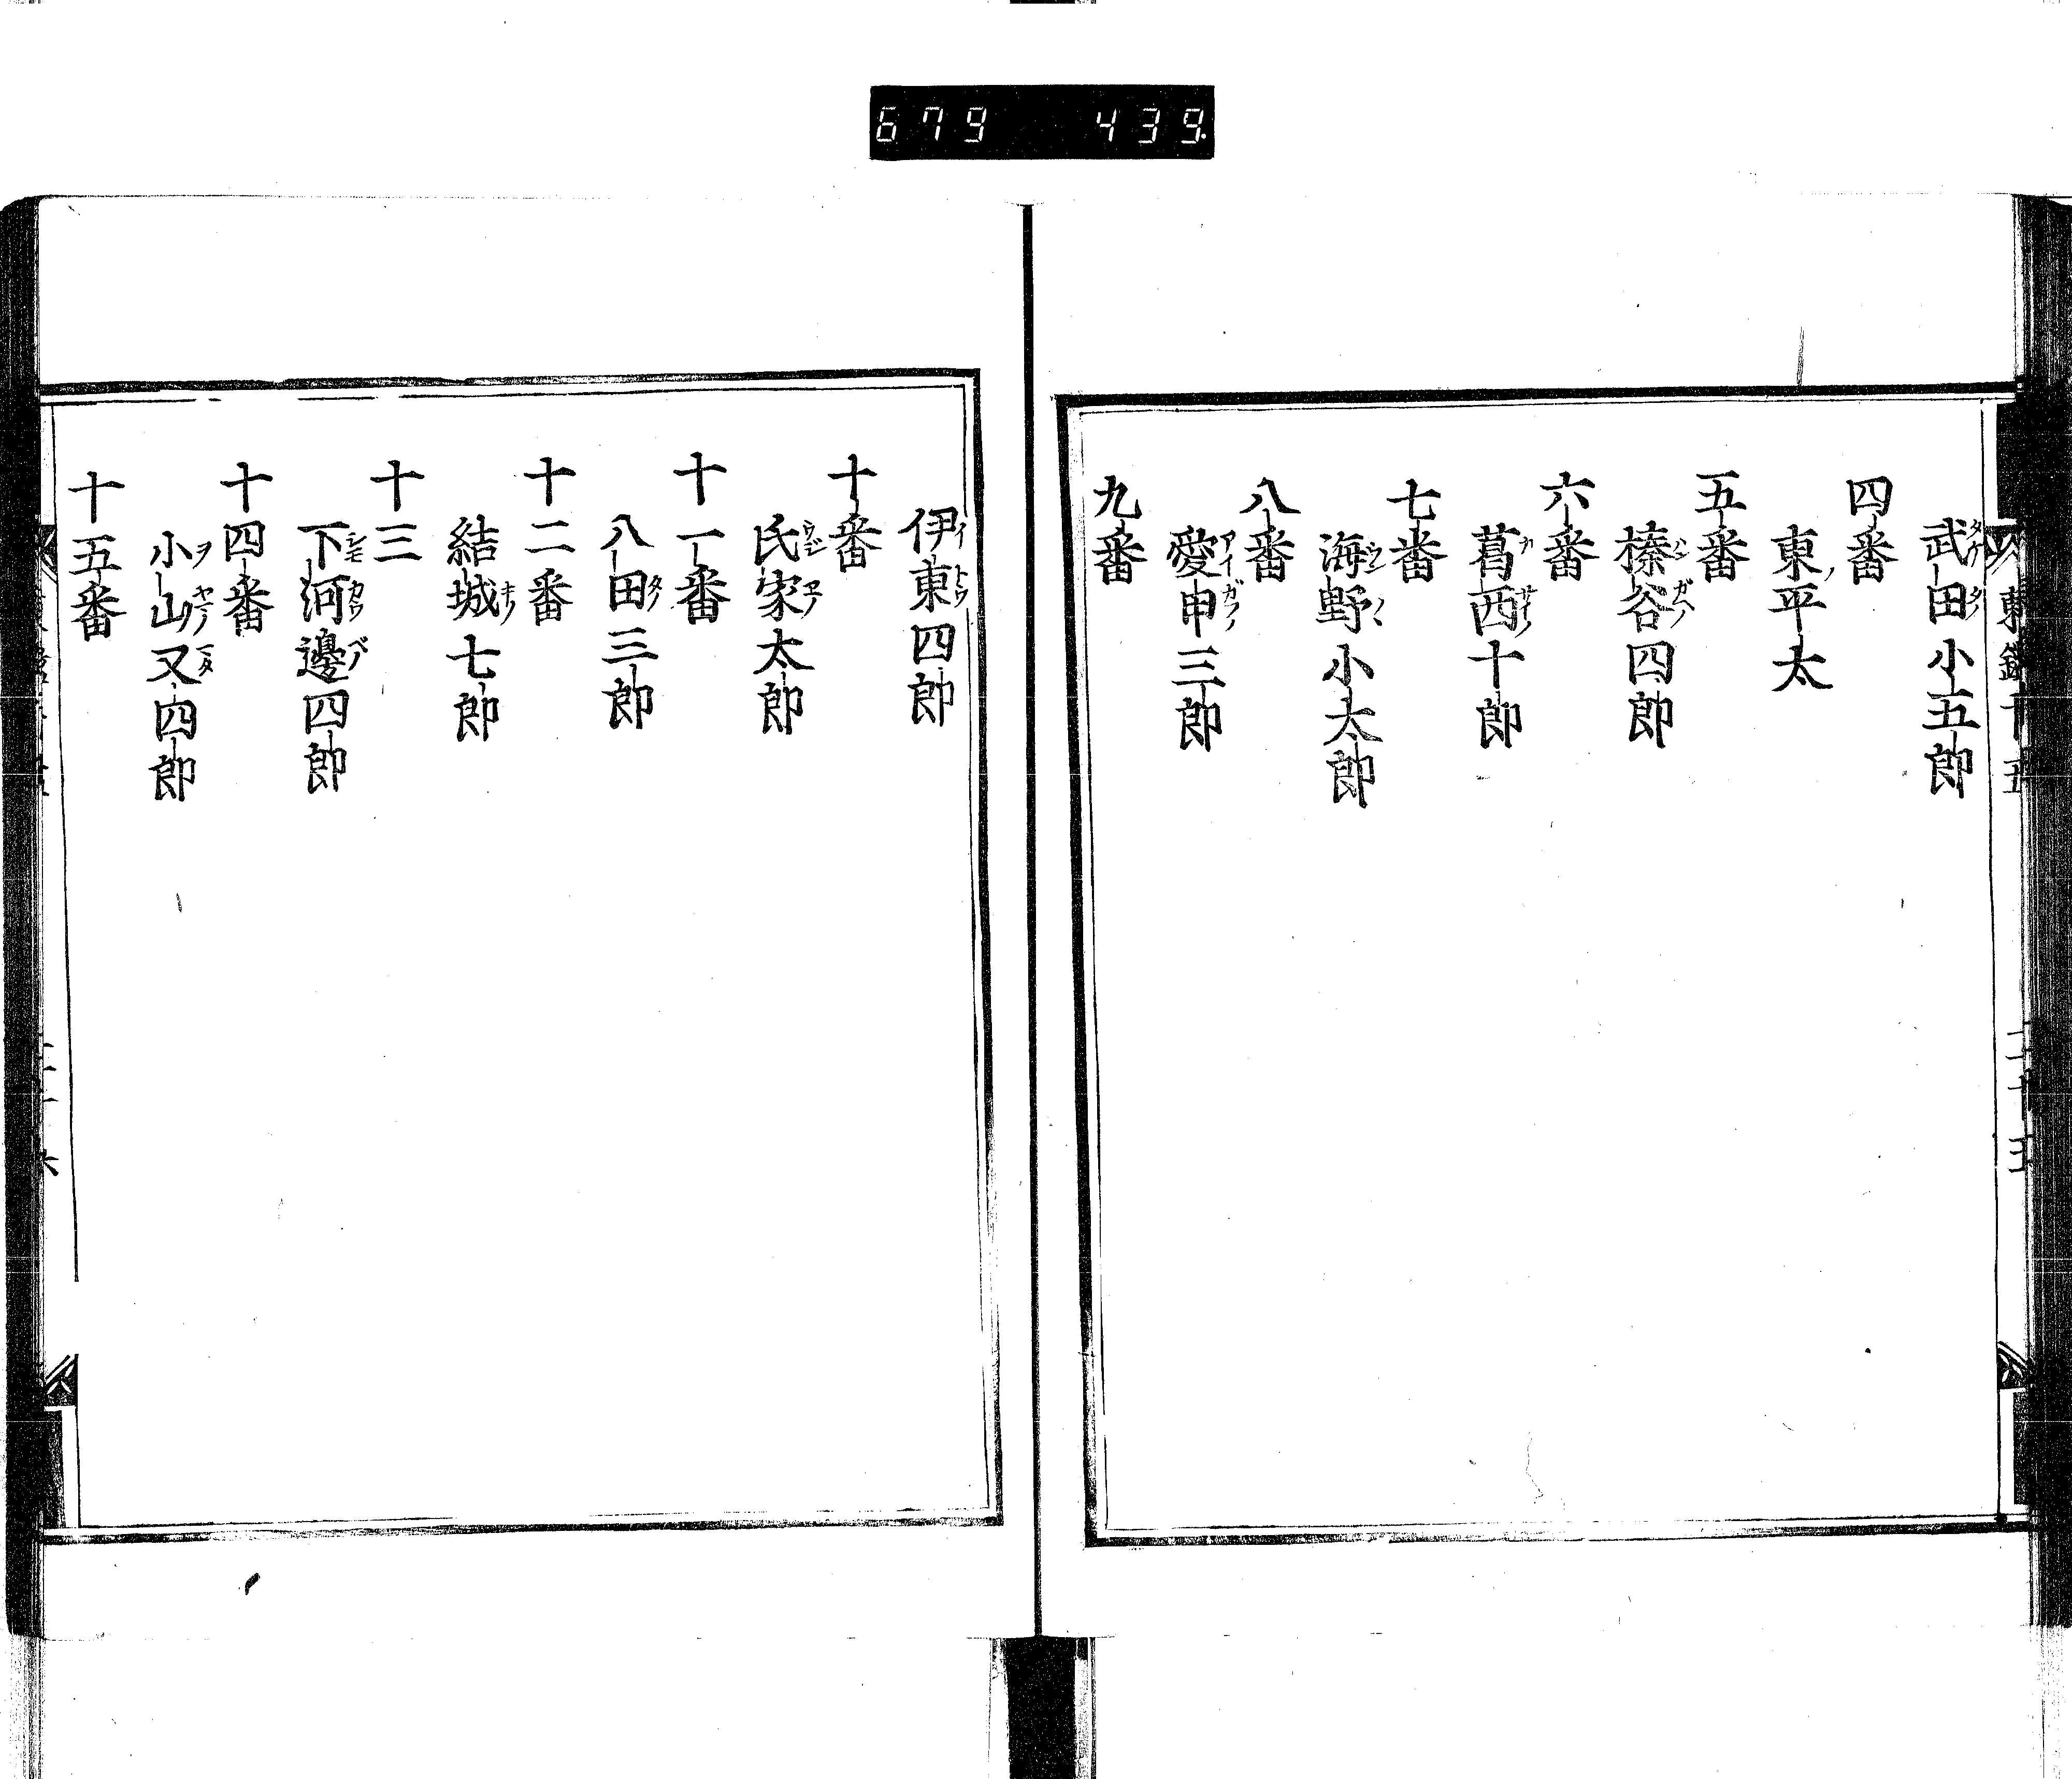 679 439
武田小五郎
四番
東平太
五番
榛谷四郎
六番
葛西十郎
七番
海野小太郎
八番
愛申三郎
九番
伊東四郎
十番
氏家太郎
十一番
八田三郎
十二番
結城七郎
十三
下河邊四郎
十四番
小山又四郎
十五番